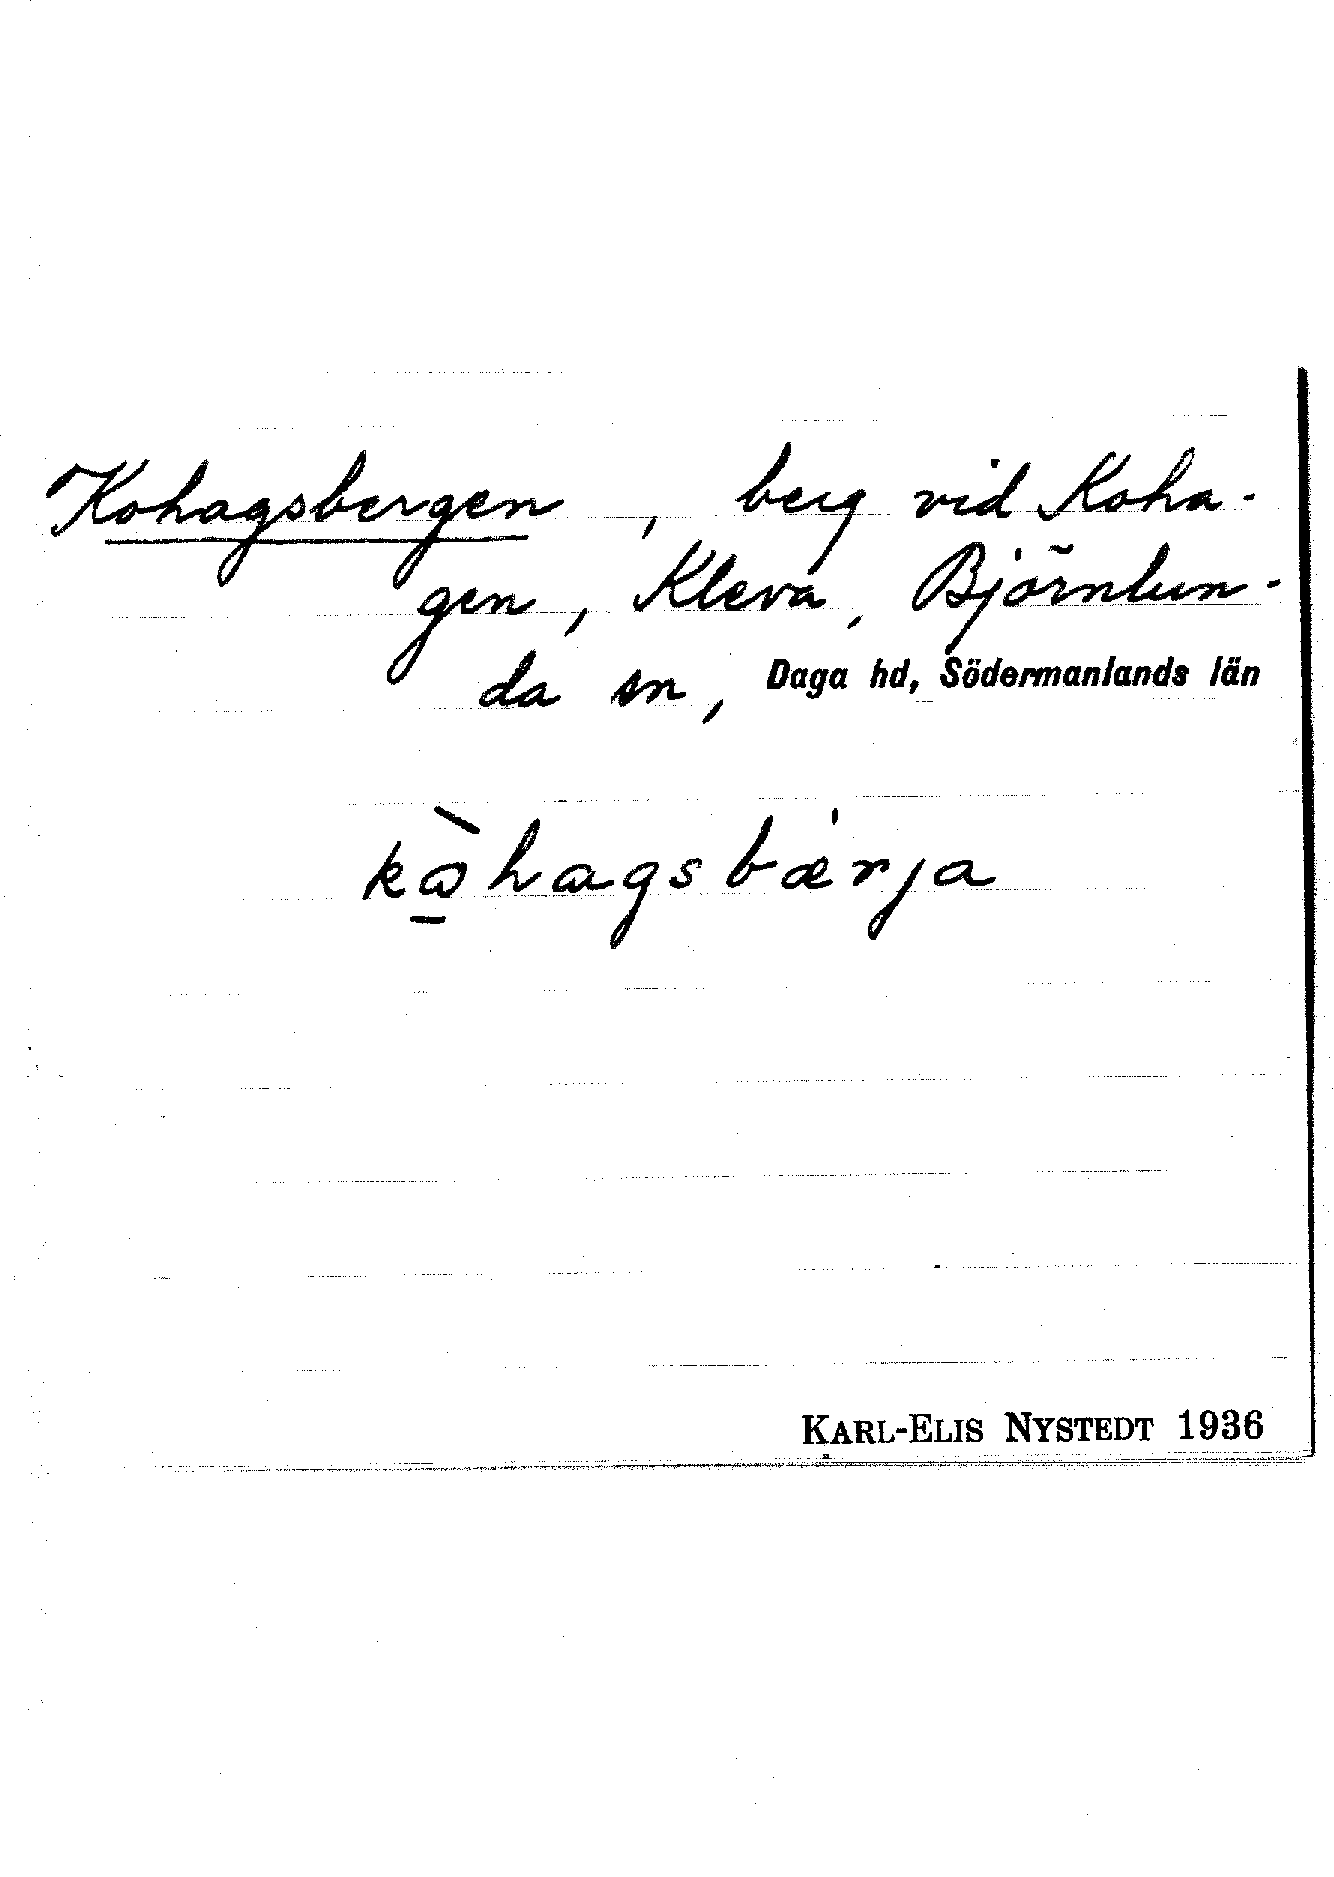 Kohagsbergen, berg vid Koha-
gen, Kleva, Björnlun-
da sn, Daga hd, Södermanlands län
kɷ̠̀hagsbǽrja
KARL-ELIS NYSTEDT 1936